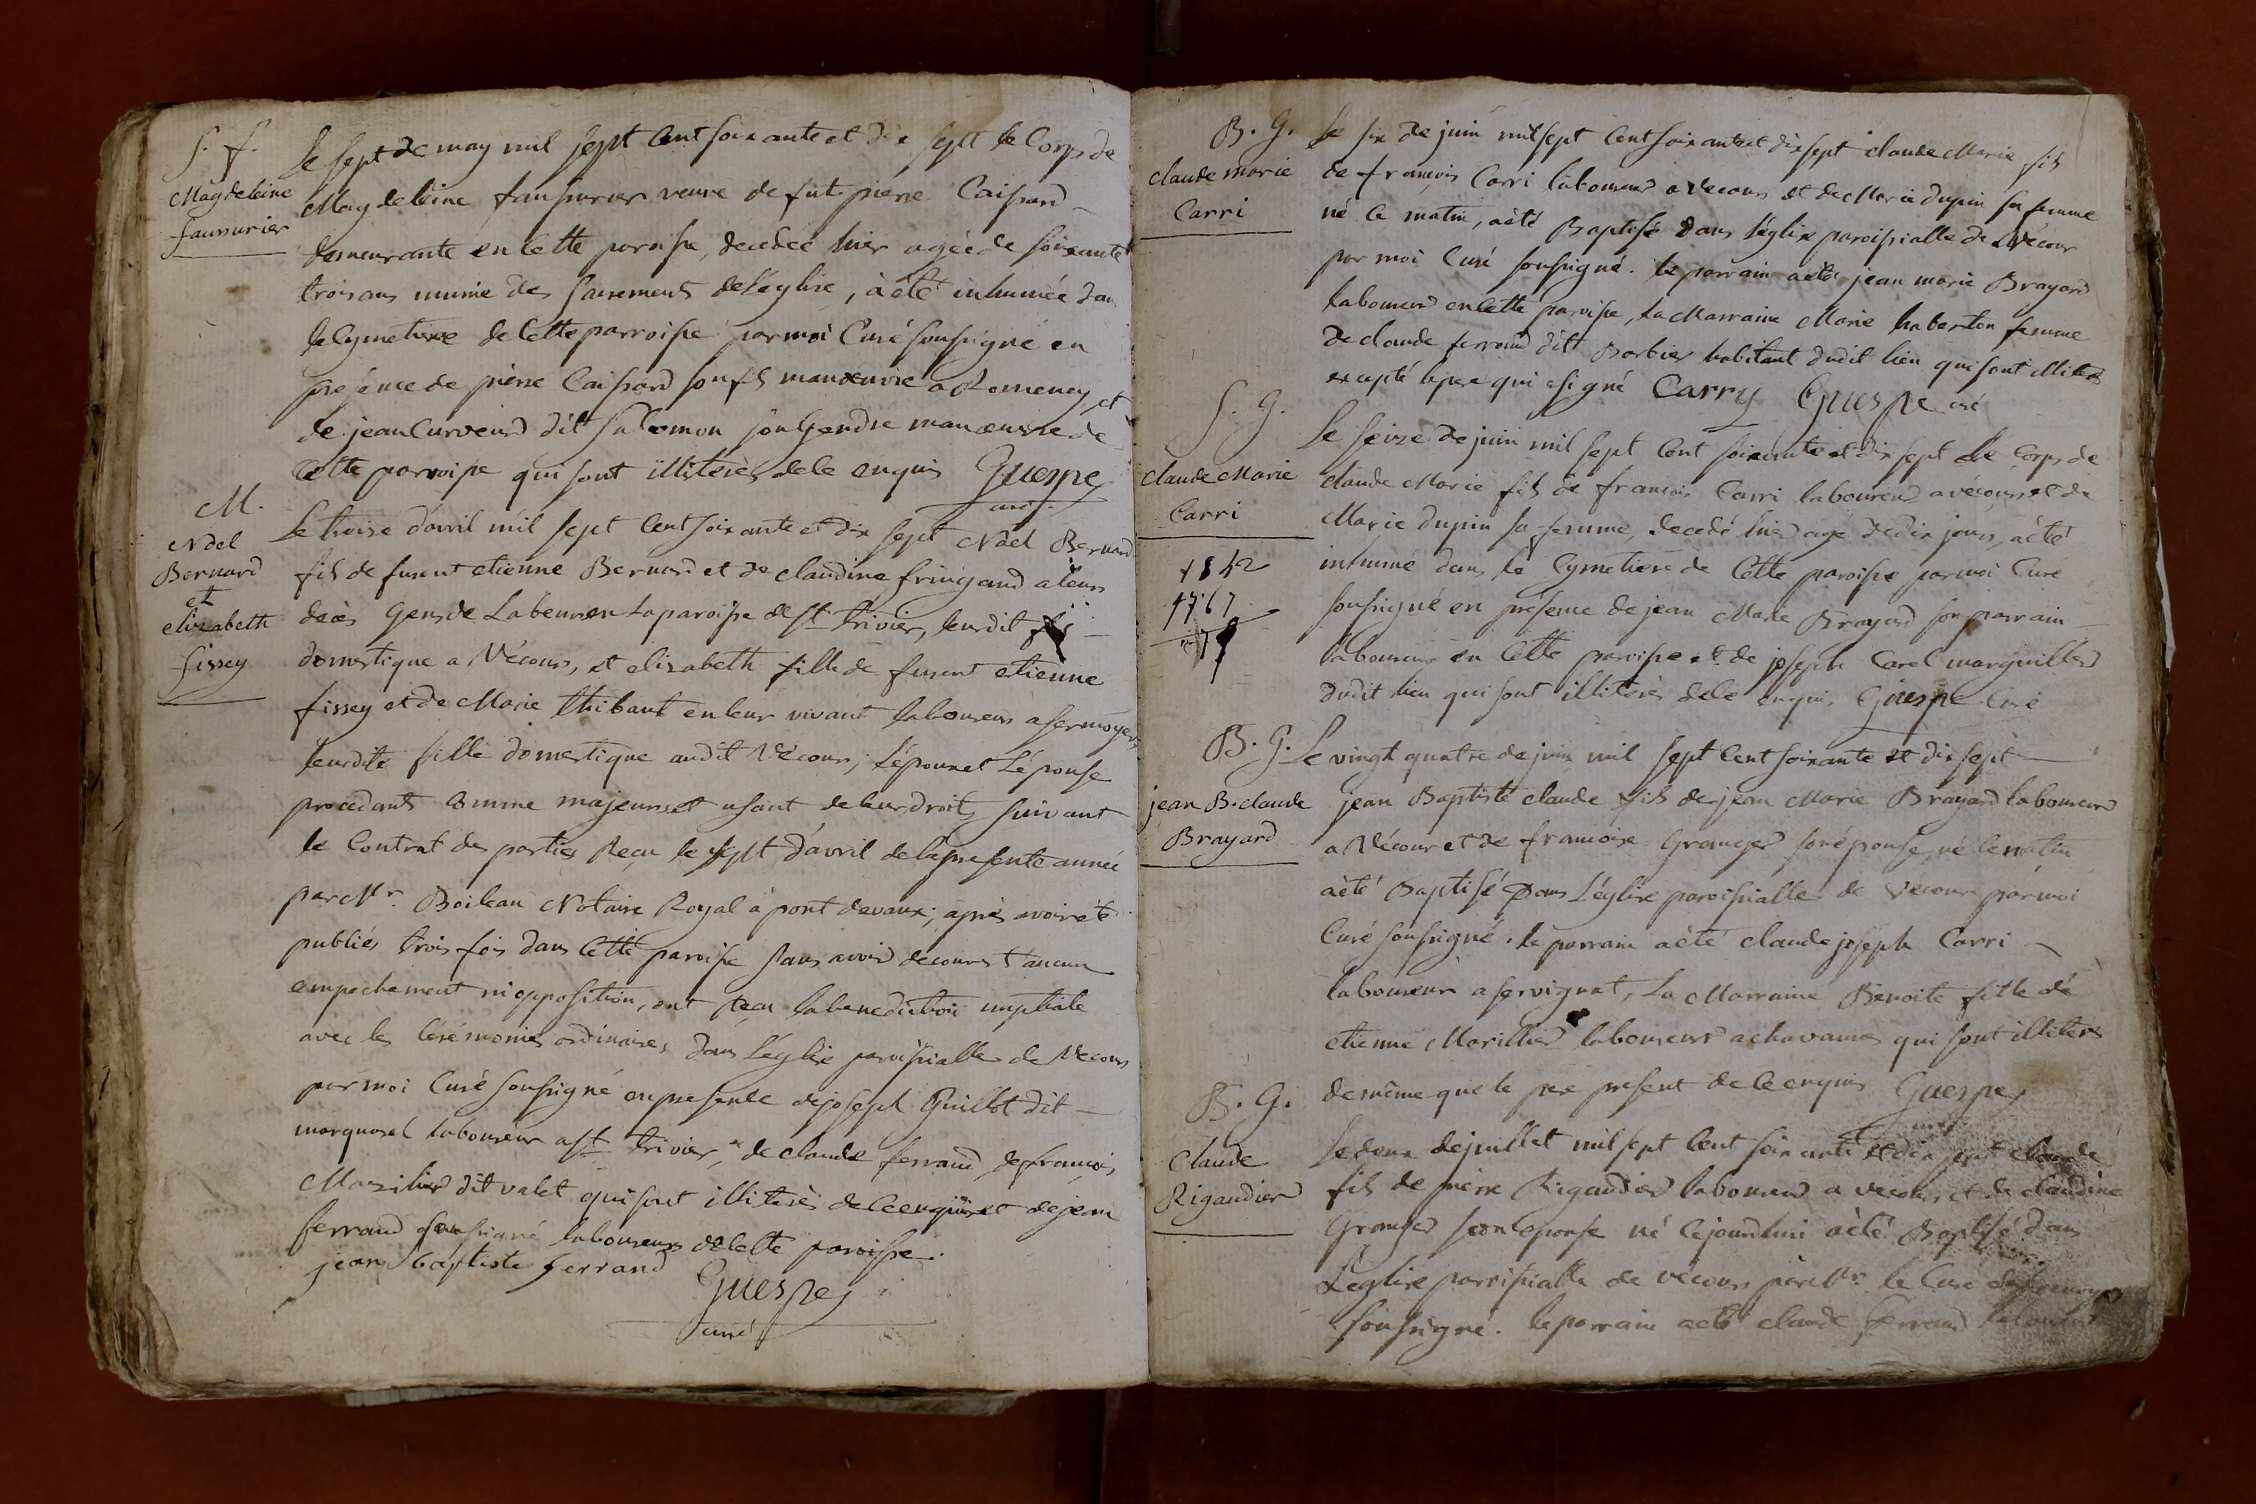 S. f.
Magdeleine
faussurier
le sept de may mil sept cent soixante et dix sept le Corps de
Magdeleine faussurier veuve de fut pierre Caissard
demeurante en cette paroisse, decedée hier agée de soixante
trois ans munie des sacrements de l'église, à été inhumée dans
le Cymetiere de cette parroisse par moi Curé soussigné en
présence de pierre Caissard son fils manœuvre a Romenay et
de jean Curveur dit salomon son Gendre manœuvre de
cette parroisse qui sont illiterés de ce enquis Guespe
curé
M.
Noel
Bernard
et
elizabeth
fissey
Le treize d'avril mil sept cent soixante et dix sept Noël Bernard
fils de furent etienne Bernard et de claudine fringand à leurs
décès Gens de Labeur en la paroisse de St trivier, leurdit fils
domestique a Vécours, et elizabeth fille de furent etienne
fissey et de Marie thibaut en leur vivant laboureurs a sermoyer
leurdite fille domestique audit Vécour; L'époux et L'épouse
procedants comme majeurs et usant de leurs droits suivant
le Contrat des parties Reçu le sept d'avril de la presente année
par Mr. Boileau Notaire Royal à pont devaux; après avoir été
publiés trois fois dans cette paroisse sans avoir decouvert aucun
empechement ni opposition, ont reçu la benediction nuptiale
avec les cérémonies ordinaires dans l'église paroissialle de Vecours
par moi Curé soussigné en presence de joseph Guillot dit
marquorel laboureur a St trivier, de claude ferrand, de françois
Mazilier dit valet qui sont illiterés de ce enquis et de jean
ferrand soussigné laboureurs de cette paroisse.
jean baptiste ferrand
Guespe
curé
B. G.
claude marie
Carri
Le six de juin mil sept cent soixante et dix sept claude Marie fils
de françois Carri laboureur a Vecours et de Marie dupin sa femme
né ce matin, a été Baptisé dans l'église paroissialle de Vécour
par moi Curé soussigné. le parrain a été jean marie Brayard
laboureur en cette paroisse, la Marraine Marie habeston femme
de claude ferrand dit Barbier habitant dudit lieu qui sont illiterés
excepté le pere qui a signé Carry Guespe curé
S. G.
claude Marie
Carri
1842
1767
Le seize de juin mil sept cent soixante et dix sept Le Corps de
claude Marie fils de francois Carri laboureur a vécours et de
Marie dupin sa femme, decedé hier agé de dix jours, a été
inhumé dans le Cymetiere de cette paroisse par moi Curé
soussigné en presence de jean Marie Brayard son parrain
laboureur en cette paroisse et de joseph Carel marguillier
dudit lieu qui sont illiterés de ce enquis Guespe Curé
B. G.
jean B. claude
Brayard
Le vingt quatre de juin mil sept cent soixante et dix sept
jean Baptiste claude fils de jean Marie Brayard laboureur
a Vécour et de francoise Granger son épouse né ce matin
a été Baptisé Dans L'église paroissialle de Vecour par moi
Curé soussigné. le parrain a été claude joseph Carri
laboureur a servignat, La Marraine Benoite fille de
etienne Morillier laboureur a chavannes qui sont illiterés
de même que le pere present de ce enquis Guespe
curé
B. G.
Claude
Rigaudier
Le deux de juillet mil sept cent soixante et dix sept claude
fils de pierre Rigaudier laboureur a vecours et de claudine
Granger son epouse né cejourdhui a été Baptisé dans
L'église parroissialle de vécours par Mr. le Curé
soussigné. le parrain a été claude ferrand laboureur